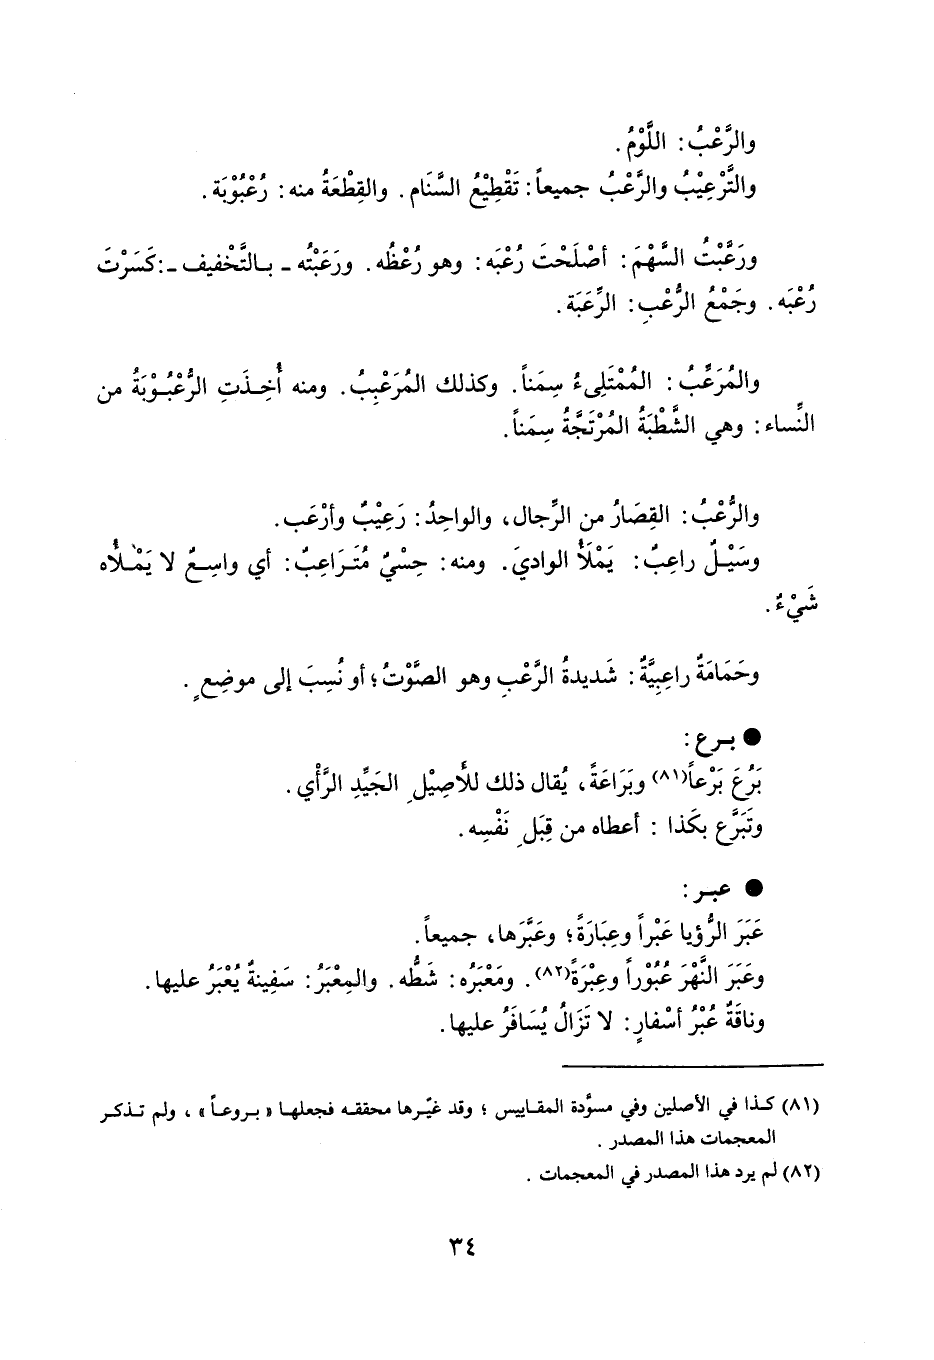 والرَّعْبُ: اللَّوْمُ.
والتَّرْعِيْبُ والرَّعْبُ جميعاً: تَقْطِيْعُ السَّنَام. والقِطْعَةُ منه: رُعْبُوْبَة.
ورَعَّبْتُ السَّهْمَ: أصْلَحْتَ رُعْبَه: وهو رُعْظُه. ورَعَبْتُه ـ بالتَّخْفيف ـ: كَسَرْتَ
رُعْبَه. وجَمْعُ الرُّعْبِ: الرِّعَبَة.
والمُرَعَّبُ: المُمْتَلِىءُ سِمَناً. وكذلك المُرَعْبِبُ. ومنه أُخِذَتِ الرُّعْبُوْبَةُ من
النِّساء: وهي الشَّطْبَةُ المُرْتَجَّةُ سِمَناً.
والرُّعْبُ: القِصَارُ من الرِّجال، والواحِدُ: رَعِيْبٌ وأرْعَب.
وسَيْلٌ راعِبٌ: يَمْلَأُ الواديَ. ومنه: حِسْيٌ مُتَرَاعِبٌ: أي واسِعٌ لا يَمْلأُه
شَيْءٌ.
وحَمَامَةٌ راعِبِيَّةٌ: شَديدةُ الرَّعْبِ وهو الصَّوْتُ؛ أو نُسِبَ إلى موضِعٍ.
● برع:
بَرُعَ بَرْعاً(٨١) وبَرَاعَةً، يُقال ذلك للأَصِيْلِ الجَيِّدِ الرَّأْي.
وتَبَرَّع بكَذا : أعطاه من قِبَلِ نَفْسِه.
● عبر:
عَبَرَ الرُّؤيا عَبْراً وعِبَارَةً؛ وعَبَّرَها، جميعاً.
وعَبَرَ النَّهْرَ عُبُوْراً وعِبْرَةً(٨٢). ومَعْبَرُه: شَطُّه. والمِعْبَرُ: سَفِينةٌ يُعْبَرُ عليها.
وناقَةٌ عُبْرُ أسْفارٍ: لا تَزَالُ يُسَافَرُ عليها.
(٨١) كذا في الأصلين وفي مسوَّدة المقاييس ؛ وقد غيّرها محققه فجعلها «بروعاً» ، ولم تذكر
المعجمات هذا المصدر .
(٨٢) لم يرد هذا المصدر في المعجمات .
٣٤